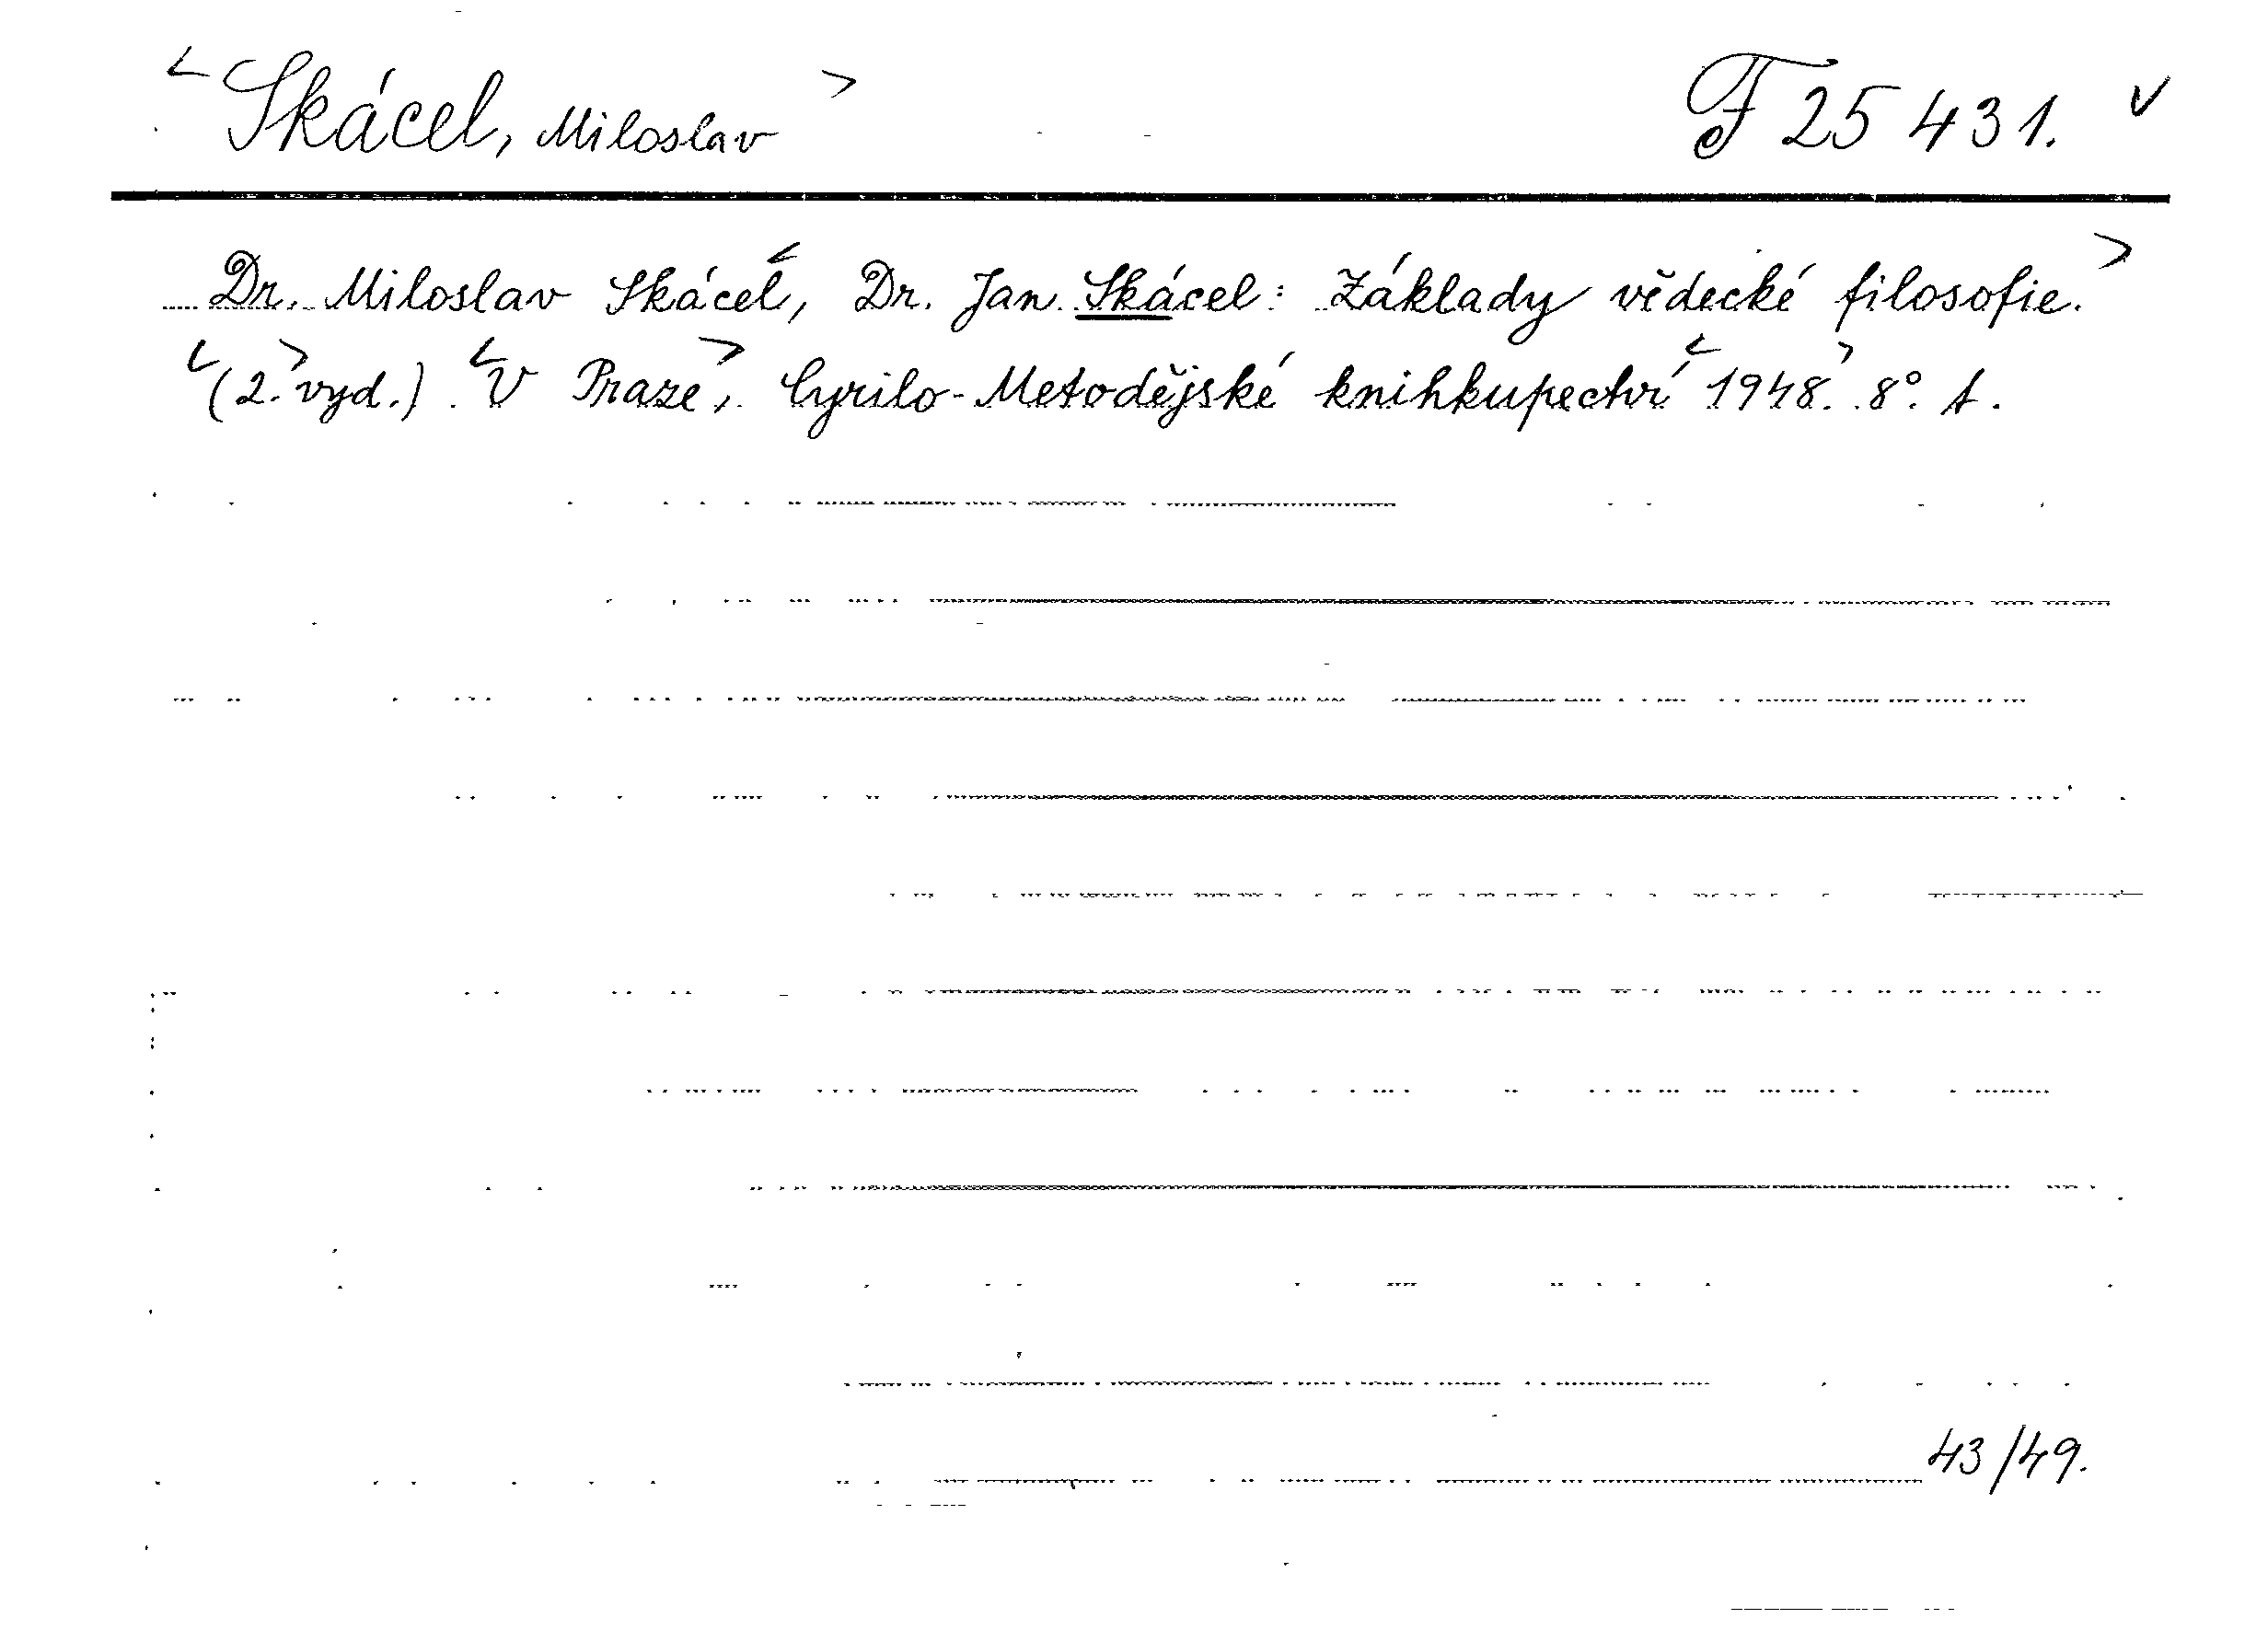 <Skácel, Miloslav> F 25 431. v
Dr. Miloslav Skácel<, Dr. Jan Skácel: Základy vědecké filosofie.>
<(2.> vyd.) <V Praze>, Cyrilo-Metodějské knihkupectví <1948.> 8°.
43/49.